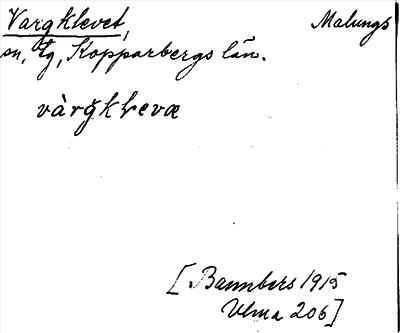 Vargklevet, Malungs
sn, tg, Kopparbergs län.
vàrgklevæ
[Bannbers 1915
Ulma 206]